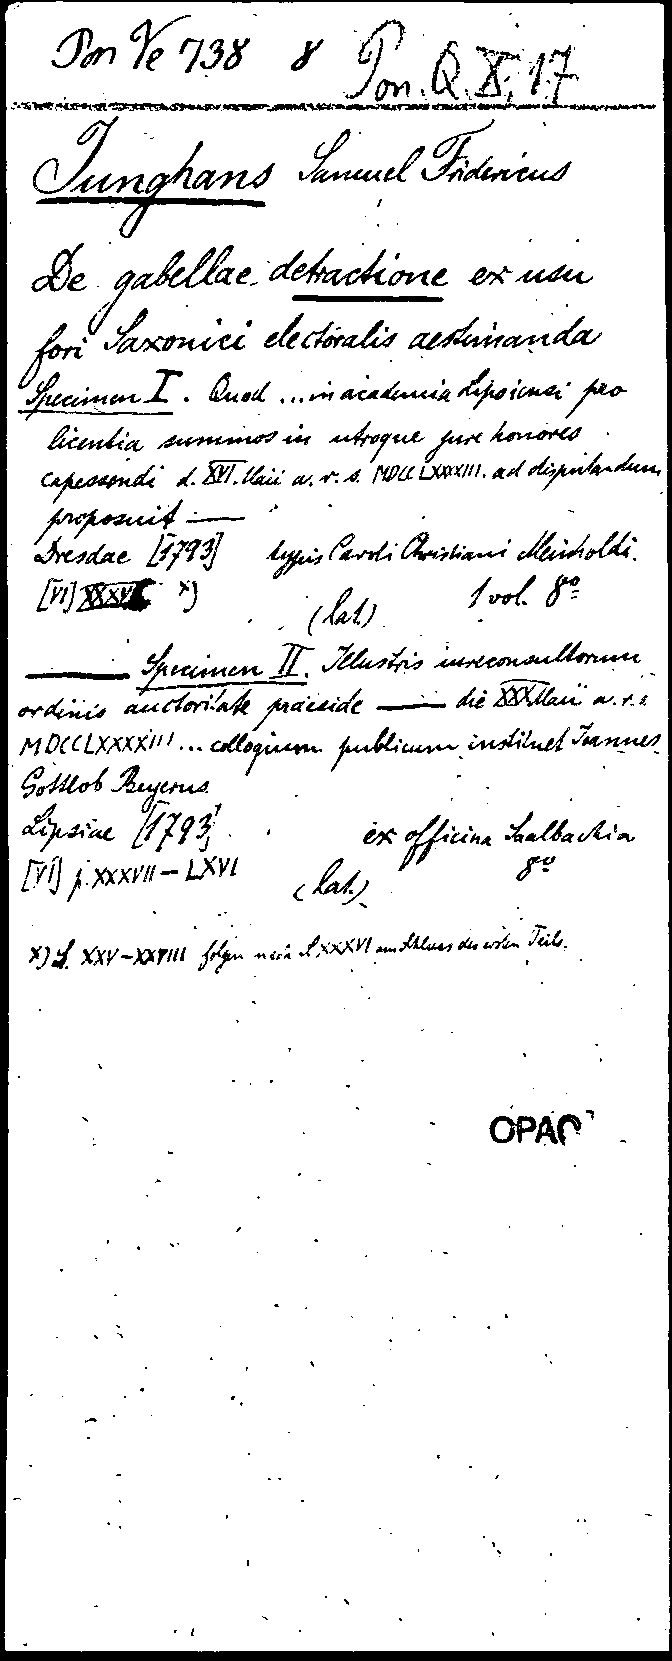 Pon Ve 738 8 Pon. Q. X, 17
Junghans Samuel Fridericus
De gabellae detractione ex usu
fori Saxonici electoralis aestimanda
Specimen I. Quod ... in academia Lipsiensi pro
licentia summos in utroque jure honores
capessendi d. XVI. Maii a. r. s. MDCCLXXXXIII. ad disputandum
proposuit —
Dresdae [1793] typis Caroli Christiani Meinholdi.
[VI] XXXVI x) 1 vol. 8º
(lat.)
— Specimen II. Illustris iureconsultorum
ordinis auctoritate praeside — die XXX Maii a. r. s.
MDCCLXXXXIII ... collogium publicum instituet Ioannes
Gottlob Beyerus.
Lipsiae [1793] ex officina Saalbachia
[VI] p. XXXVII – LXVI 8º
(lat.)
x) S. XXV–XXVIII folgen nach S. XXXVI am Schluss des ersten Teils.
OPAC